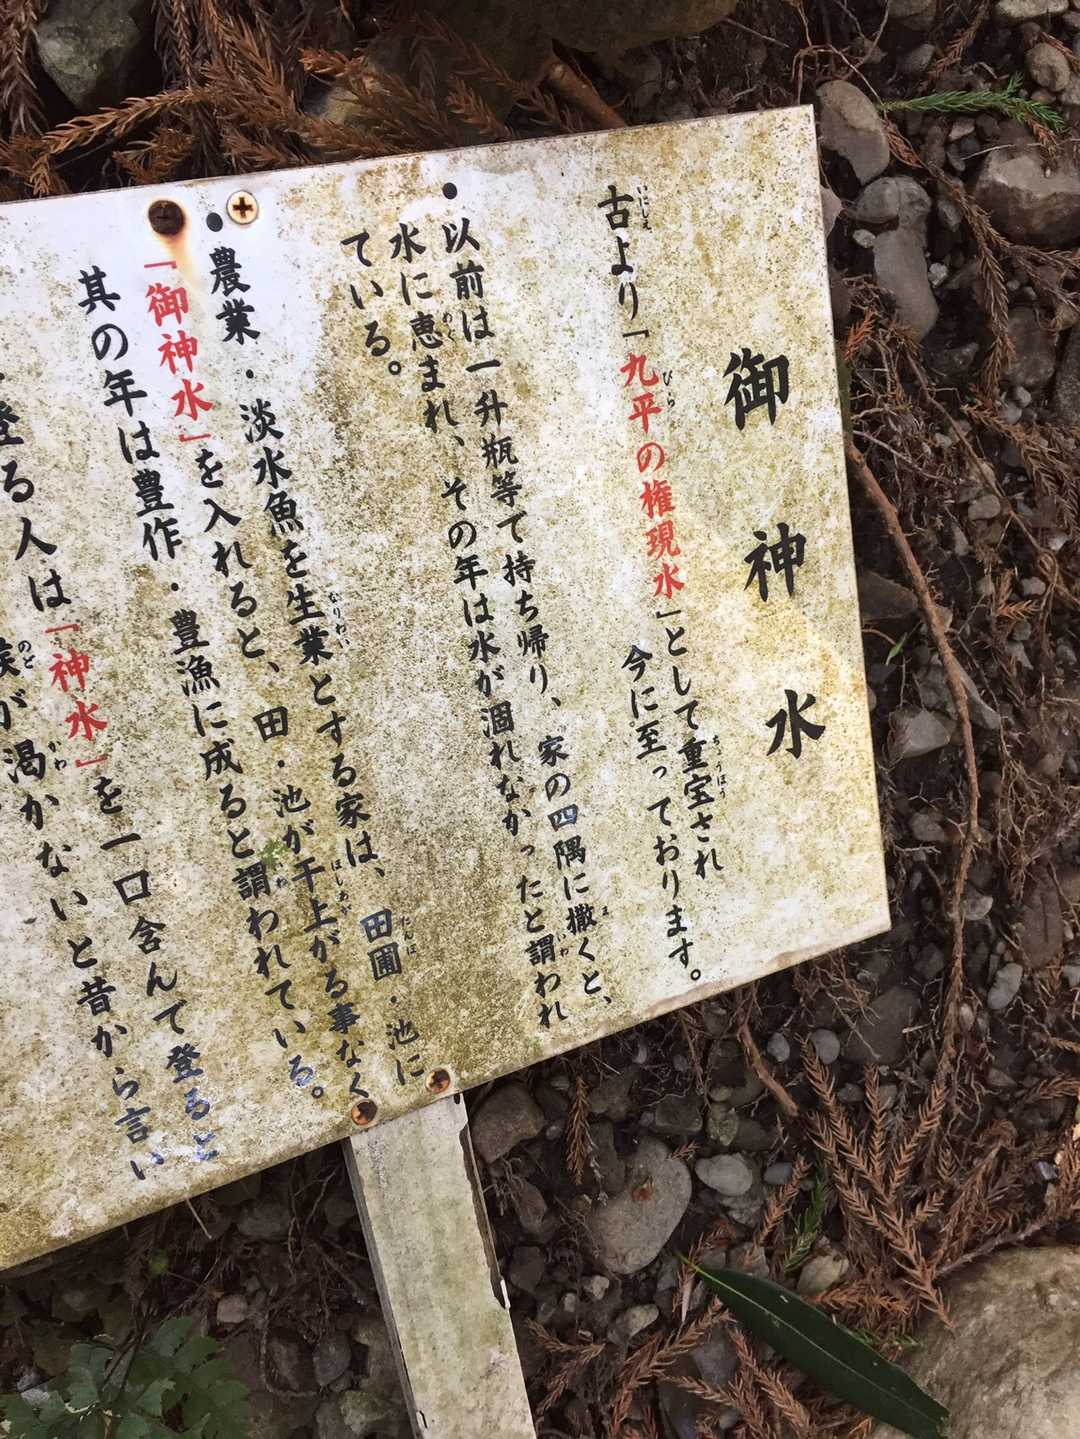 御神水
古より「九平の権現水」として重宝され
今に至っております。
・以前は一升瓶等て持ち帰り、家の四隅に撒くと、
水に恵まれ、その年は水が涸れなかったと謂われ
ている。
・農業・淡水魚を生業とする家は、田圃・池に
「御神水」を入れると、田・池が干上がる事なく
其の年は豊作・豊漁に成ると謂われている。
登る人は「神水」を一口含んで登ると
が渇かないと昔から言い